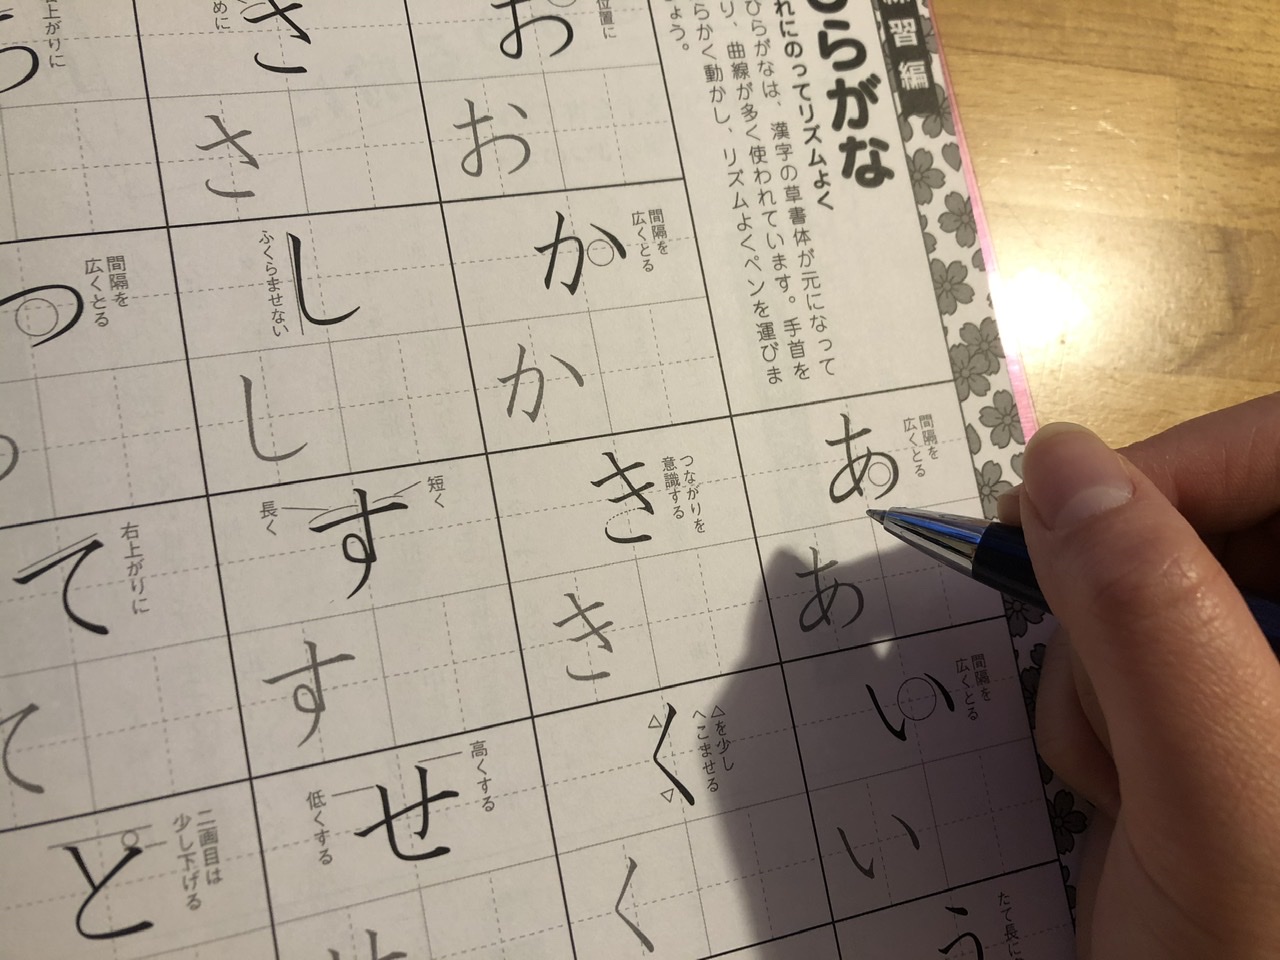 習編
ひらがな
れにのってリズムよく
ひらがなは、漢字の草書体が元になって
り、曲線が多く使われています。手首を
らかく動かし、リズムよくペンを運びま
ょう。
あ
間隔を
広くとる
あ
い
間隔を
広くとる
い
う
たて長に
お
位置に
お
か
間隔を
広くとる
か
き
つながりを
意識する
き
く
△を少し
へこませる
く
さ
めに
さ
し
ふくらませない
し
す
短く
長く
す
せ
高くする
低くする
せ
上がりに
つ
間隔を
広くとる
て
右上がりに
て
と
二画目は
少し下げる